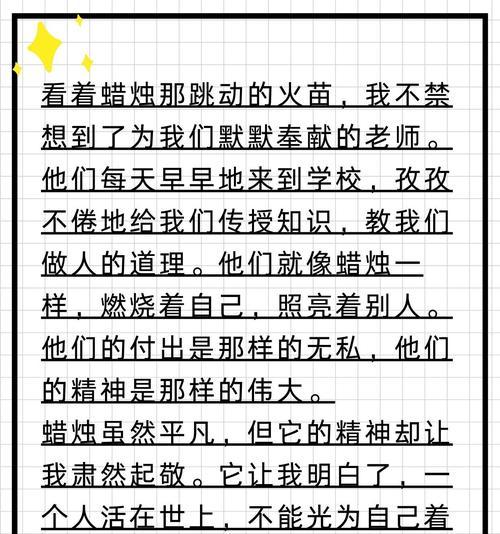 看着蜡烛那跳动的火苗，我不禁
想到了为我们默默奉献的老师。
他们每天早早地来到学校，孜孜
不倦地给我们传授知识，教我们
做人的道理。他们就像蜡烛一
样，燃烧着自己，照亮着别人。
他们的付出是那样的无私，他们
的精神是那样的伟大。
蜡烛虽然平凡，但它的精神却让
我肃然起敬。它让我明白了，一
个人活在世上，不能光为自己着